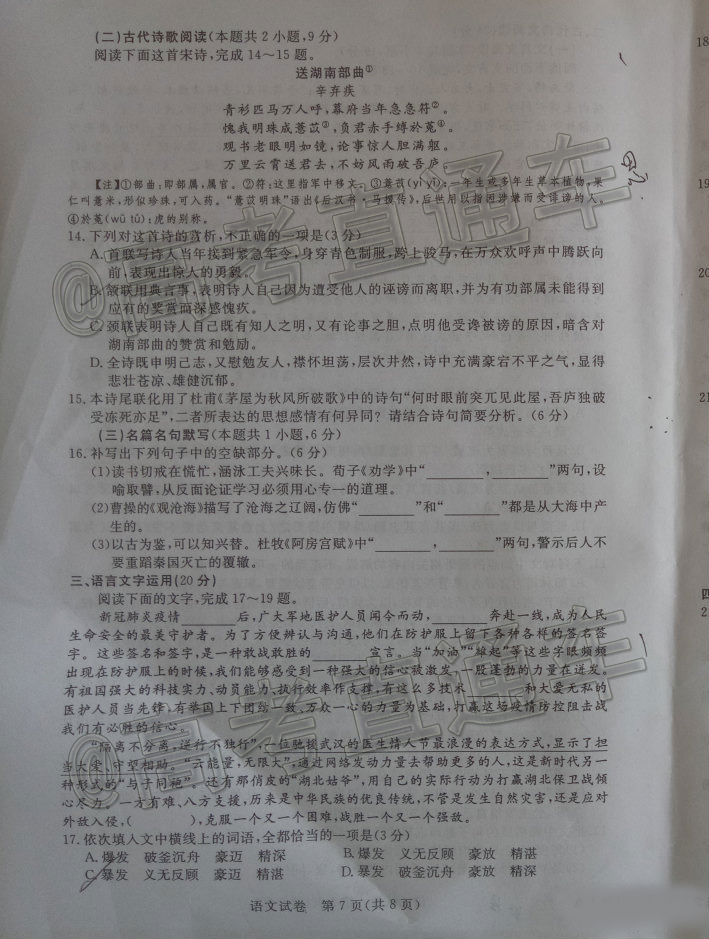 (二)古代诗歌阅读(本题共2小题,9分)
阅读下面这首宋诗,完成14～15题。
送湖南部曲①
辛弃疾
青衫匹马万人呼,幕府当年急急符②。
愧我明珠成薏苡③,负君赤手缚於菟④。
观书老眼明如镜,论事惊人胆满躯。
万里云霄送君去,不妨风雨破吾庐。
【注】①部曲:即部属,属官。②符:这里指军中移文。③薏苡(yì yǐ):一年生或多年生草本植物,果
仁叫薏米,形似珍珠,可入药。“薏苡明珠”语出《后汉书·马援传》,后世用以指因涉嫌而受诽谤的人。
④於菟(wū tú):虎的别称。
14.下列对这首诗的赏析,不正确的一项是(3分)
A.首联写诗人当年接到紧急军令,身穿青色制服,跨上骏马,在万众欢呼声中腾跃向
前,表现出惊人的勇毅。
B.颔联用典言事,表明诗人自己因为遭受他人的诬谤而离职,并为有功部属未能得到
应有的奖赏而深感愧疚。
C.颈联表明诗人自己既有知人之明,又有论事之胆,点明他受谗被谤的原因,暗含对
湖南部曲的赞赏和勉励。
D.全诗既申明己志,又慰勉友人,襟怀坦荡,层次井然,诗中充满豪宕不平之气,显得
悲壮苍凉、雄健沉郁。
15.本诗尾联化用了杜甫《茅屋为秋风所破歌》中的诗句“何时眼前突兀见此屋,吾庐独破
受冻死亦足”,二者所表达的思想感情有何异同？请结合诗句简要分析。(6分)
(三)名篇名句默写(本题共1小题,6分)
16.补写出下列句子中的空缺部分。(6分)
(1)读书切戒在慌忙,涵泳工夫兴味长。荀子《劝学》中“________,________”两句,设
喻取譬,从反面论证学习必须用心专一的道理。
(2)曹操的《观沧海》描写了沧海之辽阔,仿佛“________”和“________”都是从大海中产
生的。
(3)以古为鉴,可以知兴替。杜牧《阿房宫赋》中“________,________”两句,警示后人不
要重蹈秦国灭亡的覆辙。
三、语言文字运用(20分)
阅读下面的文字,完成17～19题。
新冠肺炎疫情________后,广大军地医护人员闻令而动,________奔赴一线,成为人民
生命安全的最美守护者。为了方便辨认与沟通,他们在防护服上留下各种各样的签名签
字。这些签名和签字,是一种敢战敢胜的________宣言。当“加油”“雄起”等这些字眼频频
出现在防护服上的时候,我们能够感受到一种强大的信心被激发,一股蓬勃的力量在迸发。
有祖国强大的科技实力、动员能力、执行效率作支撑,有这么多技术________和大爱无私的
医护人员当先锋,有举国上下团结一致、万众一心的力量为基础,打赢这场疫情防控阻击战
我们有必胜的信心。
“隔离不分离,逆行不独行”,一位驰援武汉的医生情人节最浪漫的表达方式,显示了担
当大爱、守望相助。“云能量,无限大”,通过网络发动力量去帮助更多的人,这是新时代另一
种形式的“与子同袍”。还有那俏皮的“湖北姑爷”,用自己的实际行动为打赢湖北保卫战倾
心尽力。一方有难、八方支援,历来是中华民族的优良传统,不管是发生自然灾害,还是应对
外敌入侵,(　　　　),克服一个又一个困难,战胜一个又一个强敌。
17.依次填入文中横线上的词语,全都恰当的一项是(3分)
A.爆发　破釜沉舟　豪迈　精深　　B.爆发　义无反顾　豪放　精湛
C.暴发　义无反顾　豪迈　精湛　　D.暴发　破釜沉舟　豪放　精深
语文试卷　第7页(共8页)
18
19
20
21
四
2
@高考直通车
@高考直通车